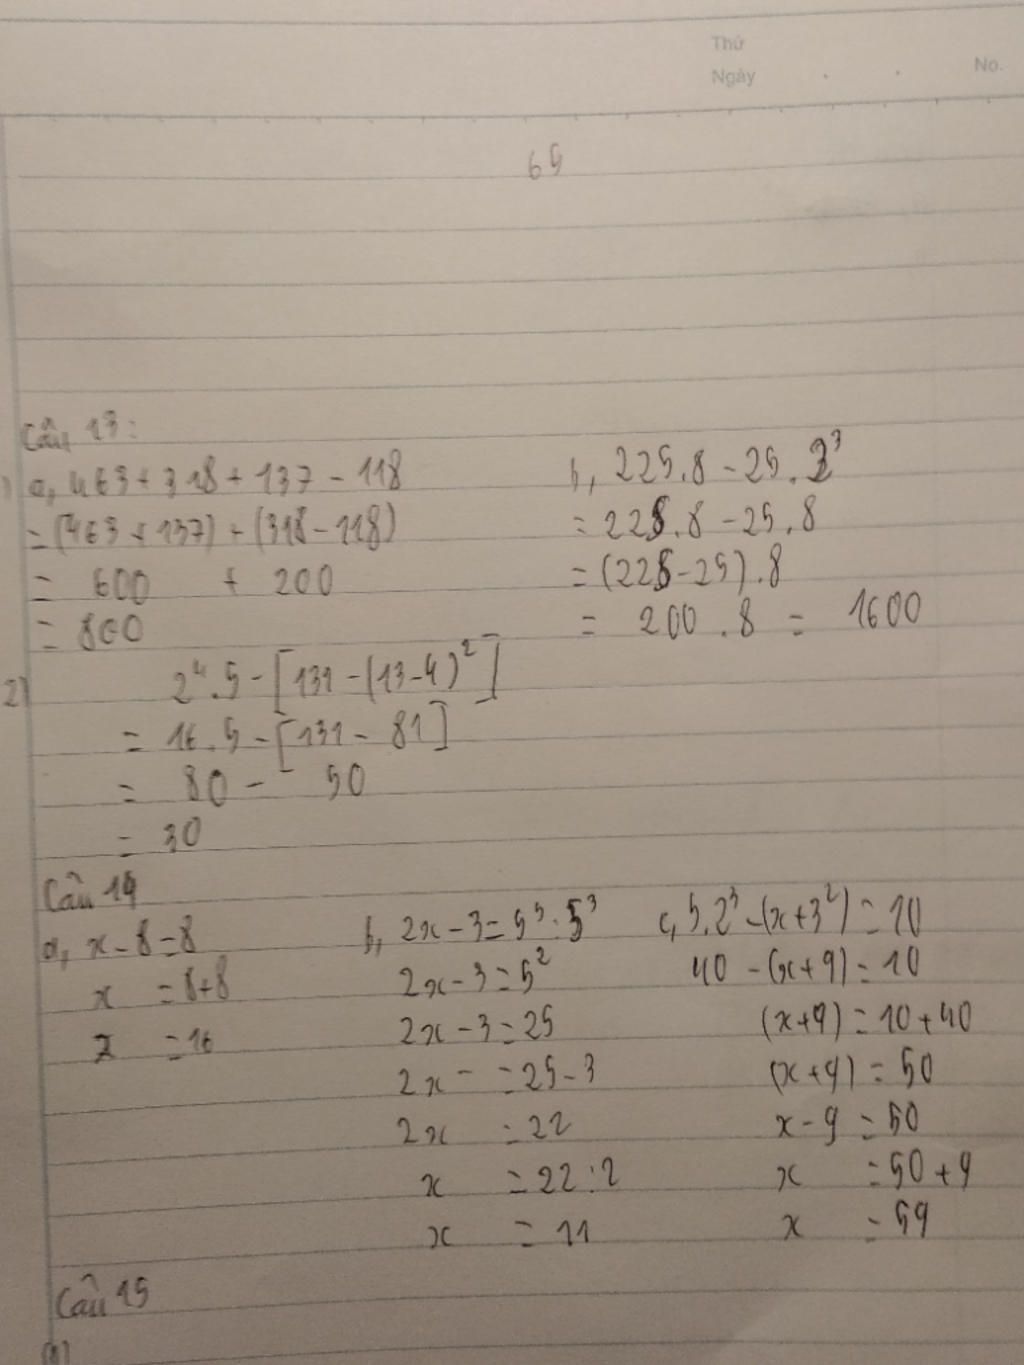 Thứ
Ngày . .
No.
65
Câu 13:
1) a, 463 + 318 + 137 - 118
= (463 + 137) + (318 - 118)
= 600 + 200
= 800
b, 225.8 - 25.2³
= 225.8 - 25.8
= (225 - 25).8
= 200.8 = 1600
2) 2⁴.5 - [131 - (13-4)²]
= 16.5 - [131 - 81]
= 80 - 50
= 30
Câu 14
a, x - 8 = 8
x = 8+8
x = 16
b, 2x - 3 = 5⁵ : 5³
2x - 3 = 5²
2x - 3 = 25
2x - = 25 - 3
2x = 22
x = 22 : 2
x = 11
c, 5.2³ - (x + 3²) = 10
40 - (x + 9) = 10
(x+9) = 10 + 40
(x+9) = 50
x - 9 = 50
x = 50 + 9
x = 59
Câu 15